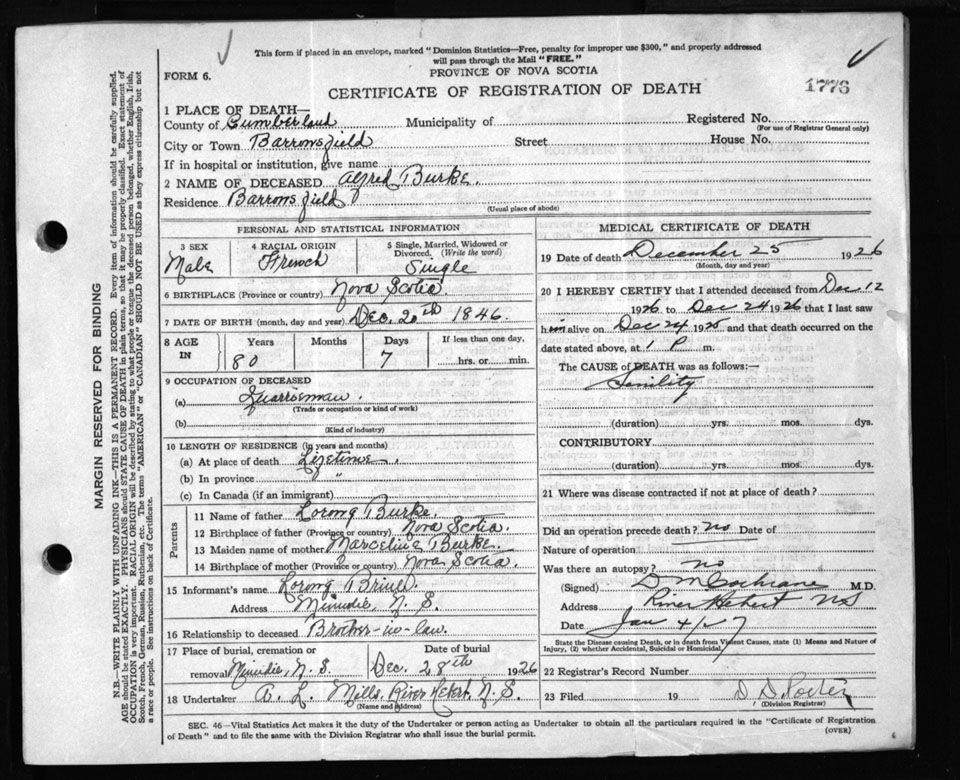 This form if placed in an envelope, marked "Dominion Statistics—Free, penalty for improper use $300," and properly addressed
will pass through the Mail "FREE."
FORM 6.
PROVINCE OF NOVA SCOTIA
1776
CERTIFICATE OF REGISTRATION OF DEATH
1 PLACE OF DEATH—
County of Cumberland Municipality of Registered No.
(For use of Registrar General only)
City or Town Barronsfield Street House No.
If in hospital or institution, give name
2 NAME OF DECEASED Alfred Burke.
Residence Barronsfield
(Usual place of abode)
PERSONAL AND STATISTICAL INFORMATION
3 SEX
Male
4 RACIAL ORIGIN
French
5 Single, Married, Widowed or
Divorced. (Write the word)
Single
6 BIRTHPLACE (Province or country) Nova Scotia.
7 DATE OF BIRTH (month, day and year) Dec. 20th 1846.
8 AGE
IN
Years
80
Months
Days
7
If less than one day,
hrs. or min.
9 OCCUPATION OF DECEASED
(a)
(Trade or occupation or kind of work)
(b)
(Kind of industry)
10 LENGTH OF RESIDENCE (in years and months)
(a) At place of death Lifetime.
(b) In province "
(c) In Canada (if an immigrant)
Parents
11 Name of father Lorong Burke.
12 Birthplace of father (Province or country) Nova Scotia.
13 Maiden name of mother Burke.
14 Birthplace of mother (Province or country) Nova Scotia.
15 Informant's name Lorong
Address Minudie, N. S.
16 Relationship to deceased Brother-in-law.
17 Place of burial, cremation or
removal Minudie, N. S.
Date of burial
Dec. 28th 1926
18 Undertaker A. L. Mills, River Hebert, N. S.
(Name and address)
MEDICAL CERTIFICATE OF DEATH
19 Date of death December 25 1926
(Month, day and year)
20 I HEREBY CERTIFY that I attended deceased from Dec 12
1926 to Dec 24 1926 that I last saw
him alive on Dec 24 1925 and that death occurred on the
date stated above, at 1 P m.
The CAUSE of DEATH was as follows:—
Senility
(duration) yrs. mos. dys.
CONTRIBUTORY
(duration) yrs. mos. dys.
21 Where was disease contracted if not at place of death?
Did an operation precede death? no Date of
Nature of operation
Was there an autopsy? no
(Signed) D M Cochrane M.D.
Address River Hebert NS
Date Jan 4/27
State the Disease causing Death, or in death from Violent Causes, state (1) Means and Nature of
Injury, (2) whether Accidental, Suicidal or Homicidal.
22 Registrar's Record Number
23 Filed 19
(Division Registrar)
SEC. 46—Vital Statistics Act makes it the duty of the Undertaker or person acting as Undertaker to obtain all the particulars required in the "Certificate of Registration
of Death" and to file the same with the Division Registrar who shall issue the burial permit.
(OVER)
MARGIN RESERVED FOR BINDING
N.B.—WRITE PLAINLY WITH UNFADING INK—THIS IS A PERMANENT RECORD. Every item of information should be carefully supplied.
AGE should be stated EXACTLY. PHYSICIANS should STATE CAUSE OF DEATH in plain terms, so that it may be properly classified. Exact statement of
OCCUPATION is very important. RACIAL ORIGIN will be described by stating to what people or tongue the deceased person belonged, whether English, Irish,
Scotch, French, German, Russian, Ruthenian, etc. The terms "AMERICAN" or "CANADIAN" SHOULD NOT BE USED as they express citizenship but not
a race or people. See instructions on back of Certificate.